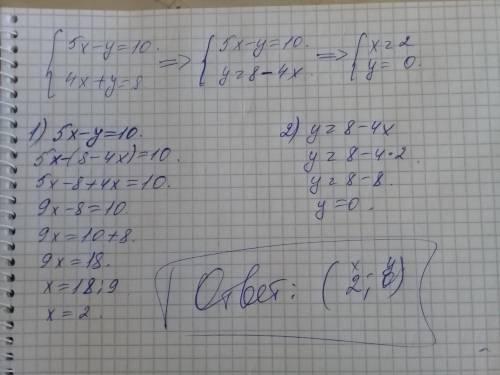 { 5x-y=10. => { 5x-y=10. => { x=2
4x+y=8 y=8-4x y= 0.
1) 5x-y=10.
5x-(8-4x)=10.
5x-8+4x=10.
9x-8=10.
9x=10+8.
9x=18.
x=18:9
x=2.
2) y=8-4x
y=8-4·2
y=8-8.
y=0.
x y
Ответ: (2; 0)